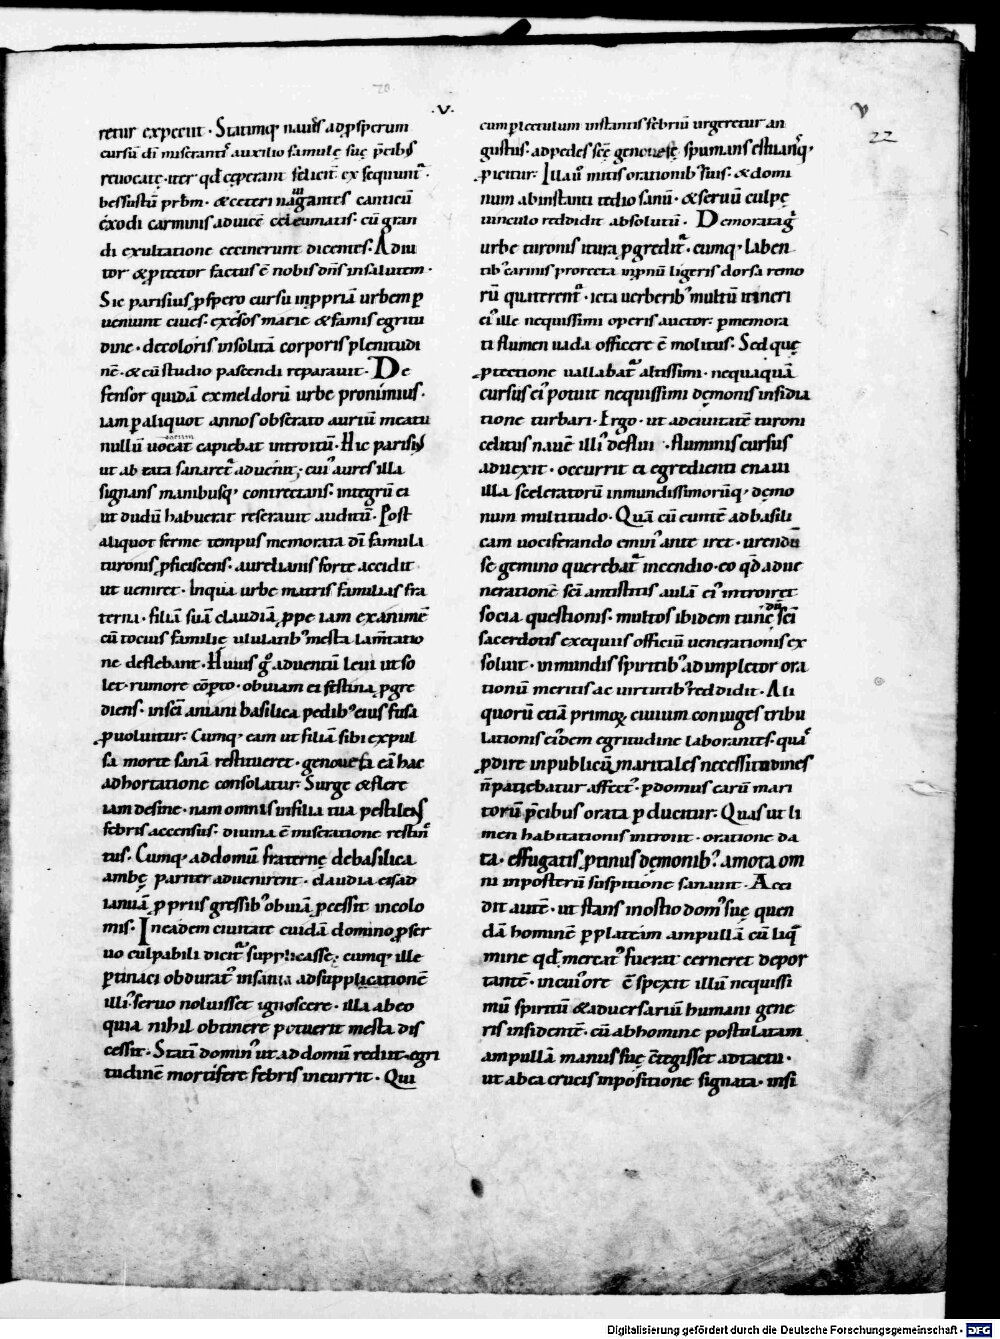 .V.
retur expeciit · Statimq; naues ad ꝓsperum
cursū di miserantis auxilio famulę suę p̄cibꝫ
reuocatę · iter qd ceperant feliciter exsequunt᷑ ·
bessustū prbm · & ceteri nauigantes canticū
exodi carminis ad uicē celeumatis · cū gran
di exultatione cecinerunt dicentes · Adiu
tor & ꝓtector factus ē nobis dn̄s in salutem ·
Sic parisius ꝓspero cursu in ppriā urbem ꝑ
ueniunt ciues · exesos macie & famis egritu
dine · decoloris insolitā corporis plenitudi
nē · & cū studio pascendi reparauit · De
fensor quidā ex meldorū urbe pronimius ·
iam ꝑ aliquot annos obserato auriū meatu
nullū uocū capiebat introitū · Hic parisius
ut ab tata sanaret᷑ aduenit; cui᷒ aures illa
signans manibusq; contrectans · integrū ei
ut dudū habuerat reserauit auditū · Post
aliquot ferme tempus memorata dī famula
turonis ꝓficiscens · aurelianis forte accidit
ut ueniret · In qua urbe matris familias fra
terna · filiā suā claudiā ꝓpe iam exanimē
cū tocius familię ululatibꝫ mesta lam̄tatio
ne deflebant · Huius gͦ aduentū leui ut so
let · rumore cōꝑto · obuiam ei festina ꝓgre
diens · in sc̄i aniani basilica pedibꝫ eius fusa
ꝓuoluitur: Cumq; eam ut filiā sibi expul
sa morte sanā restitueret · genouefa eā hac
adhortatione consolatur: Surge & flere
iam desine · nam omnis in filia tua pestilens
febris accensus · diuina ē miseratione restinc
tus · Cumq; ad domū fraternę de basilica
ambę pariter aduenirent · claudia eis ad
ianuā ꝓpriis gressibꝫ obuiā ꝓcessit incolo
mis · In eadem ciuitate cuidā domino ꝓ ser
uo culpabili dicit᷑ supplicasse; cumq; ille
ꝑtinaci obdurat᷒ insania ad supplicationē
illi᷒ seruo noluisset ignoscere · illa abeo
quia nihil obtinere potuerit mesta dis
cessit · Statī domin᷒ ut ad domū rediit · egri
tudinē mortiferę febris incurrit · Qui
22
cum ꝑ lectulum instantis febriū urgeretur an
gustus · ad pedes scę genouefę spumans estuansq;
ꝓicitur: Illaū mitis orationibꝫ suis · & domi
num ab instanti tedio sanū · & seruū culpę
uinculo reddidit absolutū · Demorata gͦ
urbe turonis itura ꝓgredit᷑ · cumq; laben
tibꝫ carinis protecta in pnū ligeris dorsa remo
rū quaterent᷑ · icta uerberibꝫ multū itineri
ei᷒ ille nequissimi operis auctor: ꝑ memora
ti flumen uada officere ē molitus · Sed quę
ꝓtectione uallabat᷑ altissimi · nequaquā
cursus ei᷒ potuit nequissimi demonis insidia
tione turbari · Ergo · ut ad ciuitatē turoni
celitus nauē illi᷒ deflui · fluminis cursus
aduexit · occurrit ei egredienti e naui
illa sceleratorū inmundissimorūq; dęmo
num multitudo · Quā cū euntē ad basili
cam uociferando emin᷒ ante iret · urendū
se gemino querebat᷑ incendio · eo qd ad ue
nerationē sc̄i antistitis aulā ei᷒ introiret
socia questionis · multos ibidem tunc dū sc̄i
sacerdotis exequiis officiū uenerationis ex
soluit · inmundis spiritibꝫ adimpletor ora
tionū meritis ac uirtutibꝫ reddidit · Ali
quorū etiā primoꝝ ciuium coniuges tribu
lationis eidem egritudine laborantes · quas
ꝓdire in publicū maritales necessitudines
n̄ patiebatur affect᷒ · ꝓ domus earū mari
torū p̄cibus orata ꝑducitur: Quas ut li
men habitationis introiit · oratione da
ta · effugatis ꝓtinus dęmonibꝫ · amota om
ni in posterū suspitione sanauit · Acci
dit autē · ut stans in ostio dom᷒ suę quen
dā hominē ꝑ plateam ampullā cū liqua
mine qd mercat᷒ fuerat cerneret depor
tantē · in cui᷒ ore ēspexit illū nequissi
mū spiritū & aduersariū humani gene
ris insidentē · cū ab homine postulatam
ampullā manus suę c̄tegisset ad tactu ·
ut ab ea crucis inpositione signata · insi
Digitalisierung gefördert durch die Deutsche Forschungsgemeinschaft - DFG